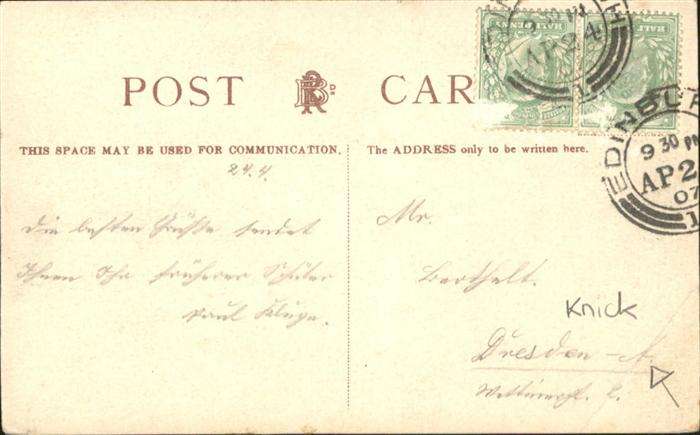 POST CARD
THIS SPACE MAY BE USED FOR COMMUNICATION.
The ADDRESS only to be written here.
24.4.
Die besten Grüße sendet
Ihnen Ihr früherer Schüler
Paul Kluge.
Mr.
Barthelt.
Knick
Dresden-A.
EDINBURGH
9 30 PM
AP 24
07
1
9 30 PM
AP 24
1
HALF